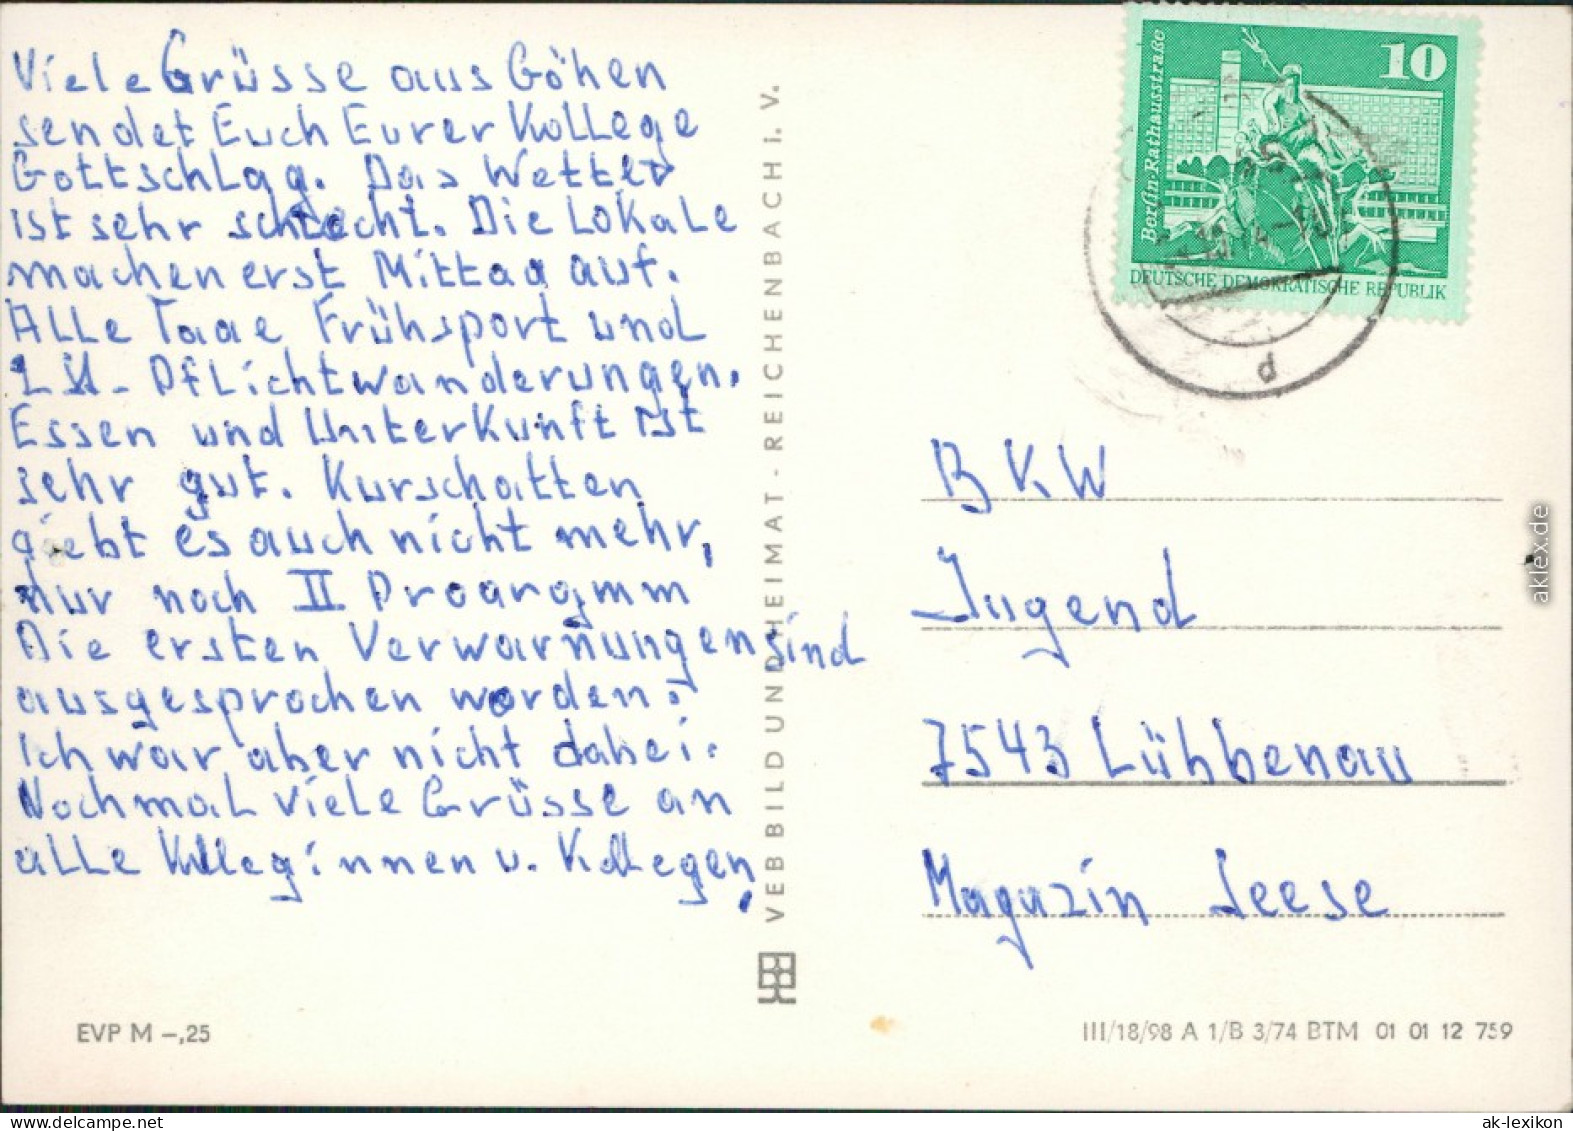 Viele Grüsse aus Göhen
sendet Euch Eurer Kollege
Gottschlag. Das Wetter
ist sehr schlecht. Die Lokale
machen erst Mittag auf.
Alle Tage Frühsport und
Pflichtwanderungen.
Essen und Unterkunft ist
sehr gut. Kurschatten
giebt es auch nicht mehr,
nur noch II Proargmm
Die ersten Verwarnungen sind
ausgesprochen worden.
Ich war aber nicht dabei.
Nochmal viele Grüsse an
alle Kolleginnen u. Kollegen.
EVP M –,25
VEB BILD UND HEIMAT - REICHENBACH i. V.
Berlin-Rathausstraße
10
DEUTSCHE DEMOKRATISCHE REPUBLIK
d
BKW
Jugend
7543 Lübbenau
Magazin Seese
III/18/98 A 1/B 3/74 BTM 01 01 12 759
aklex.de
www.delcampe.net
ak-lexikon